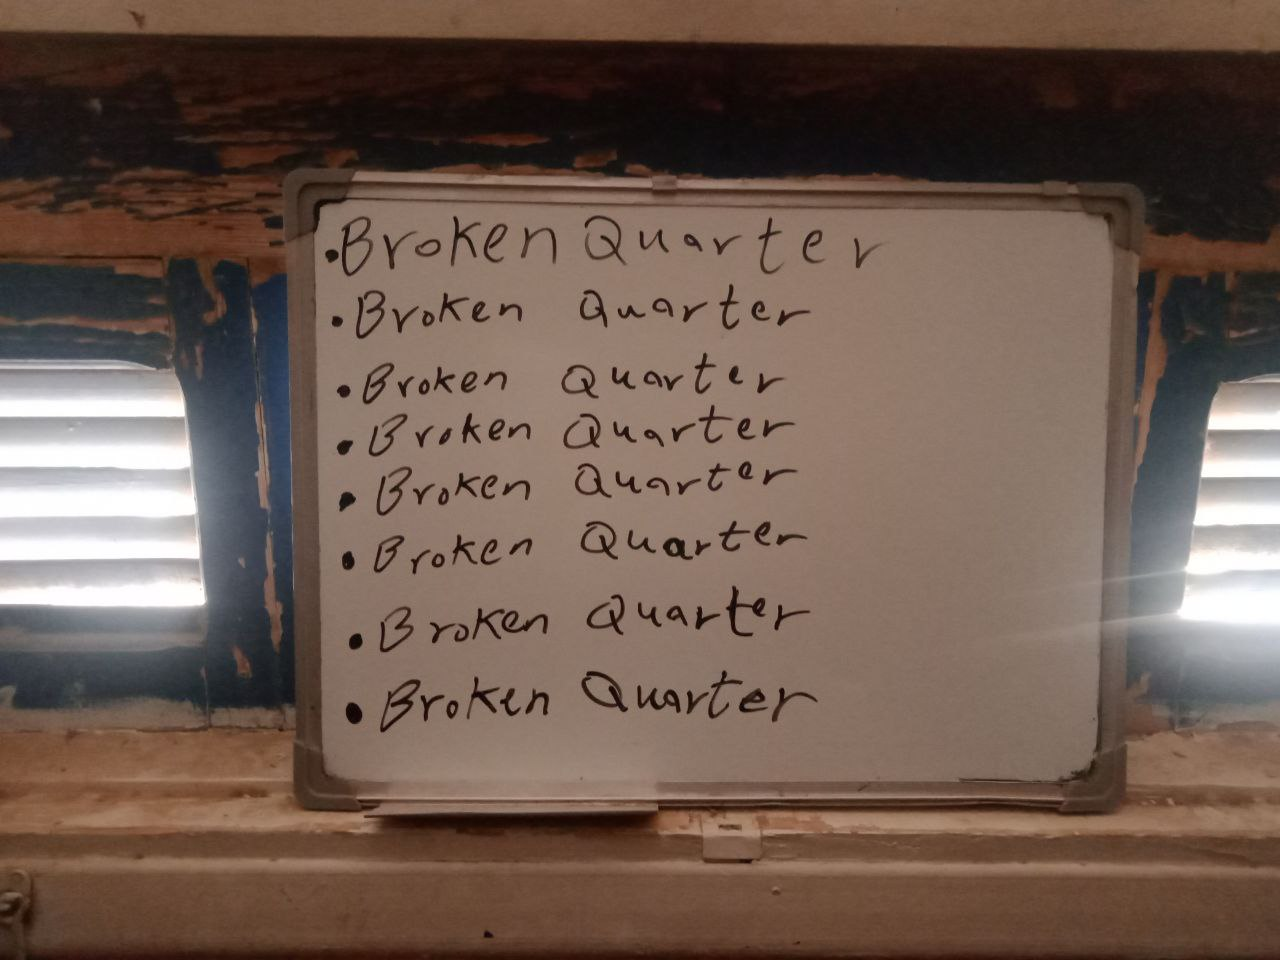 •Broken Quarter
•Broken Quarter
•Broken Quarter
•Broken Quarter
•Broken Quarter
•Broken Quarter
•Broken Quarter
•Broken Quarter